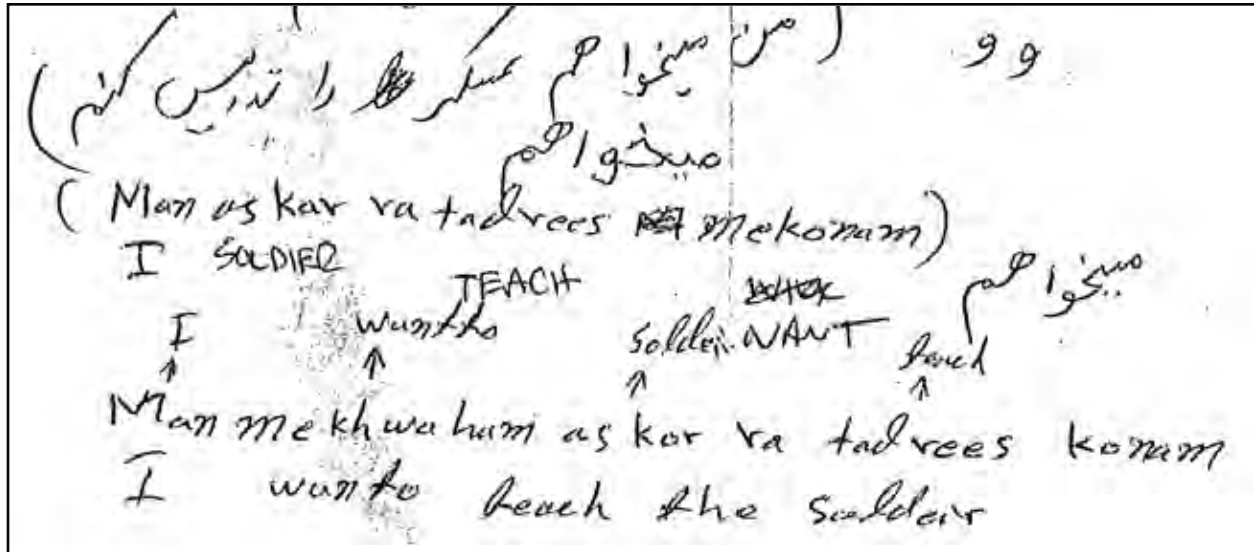 وو (من میخواهم عسکر را تدریس کنم)
میخواهم
(Man askar ra tadrees mekonam)
I SOLDIER
TEACH
میخواهم
I wantto soldeir WANT teach
↑ ↑ ↑ ↑
Man mekhwaham askar ra tadrees konam
I wanto teach the soldeir